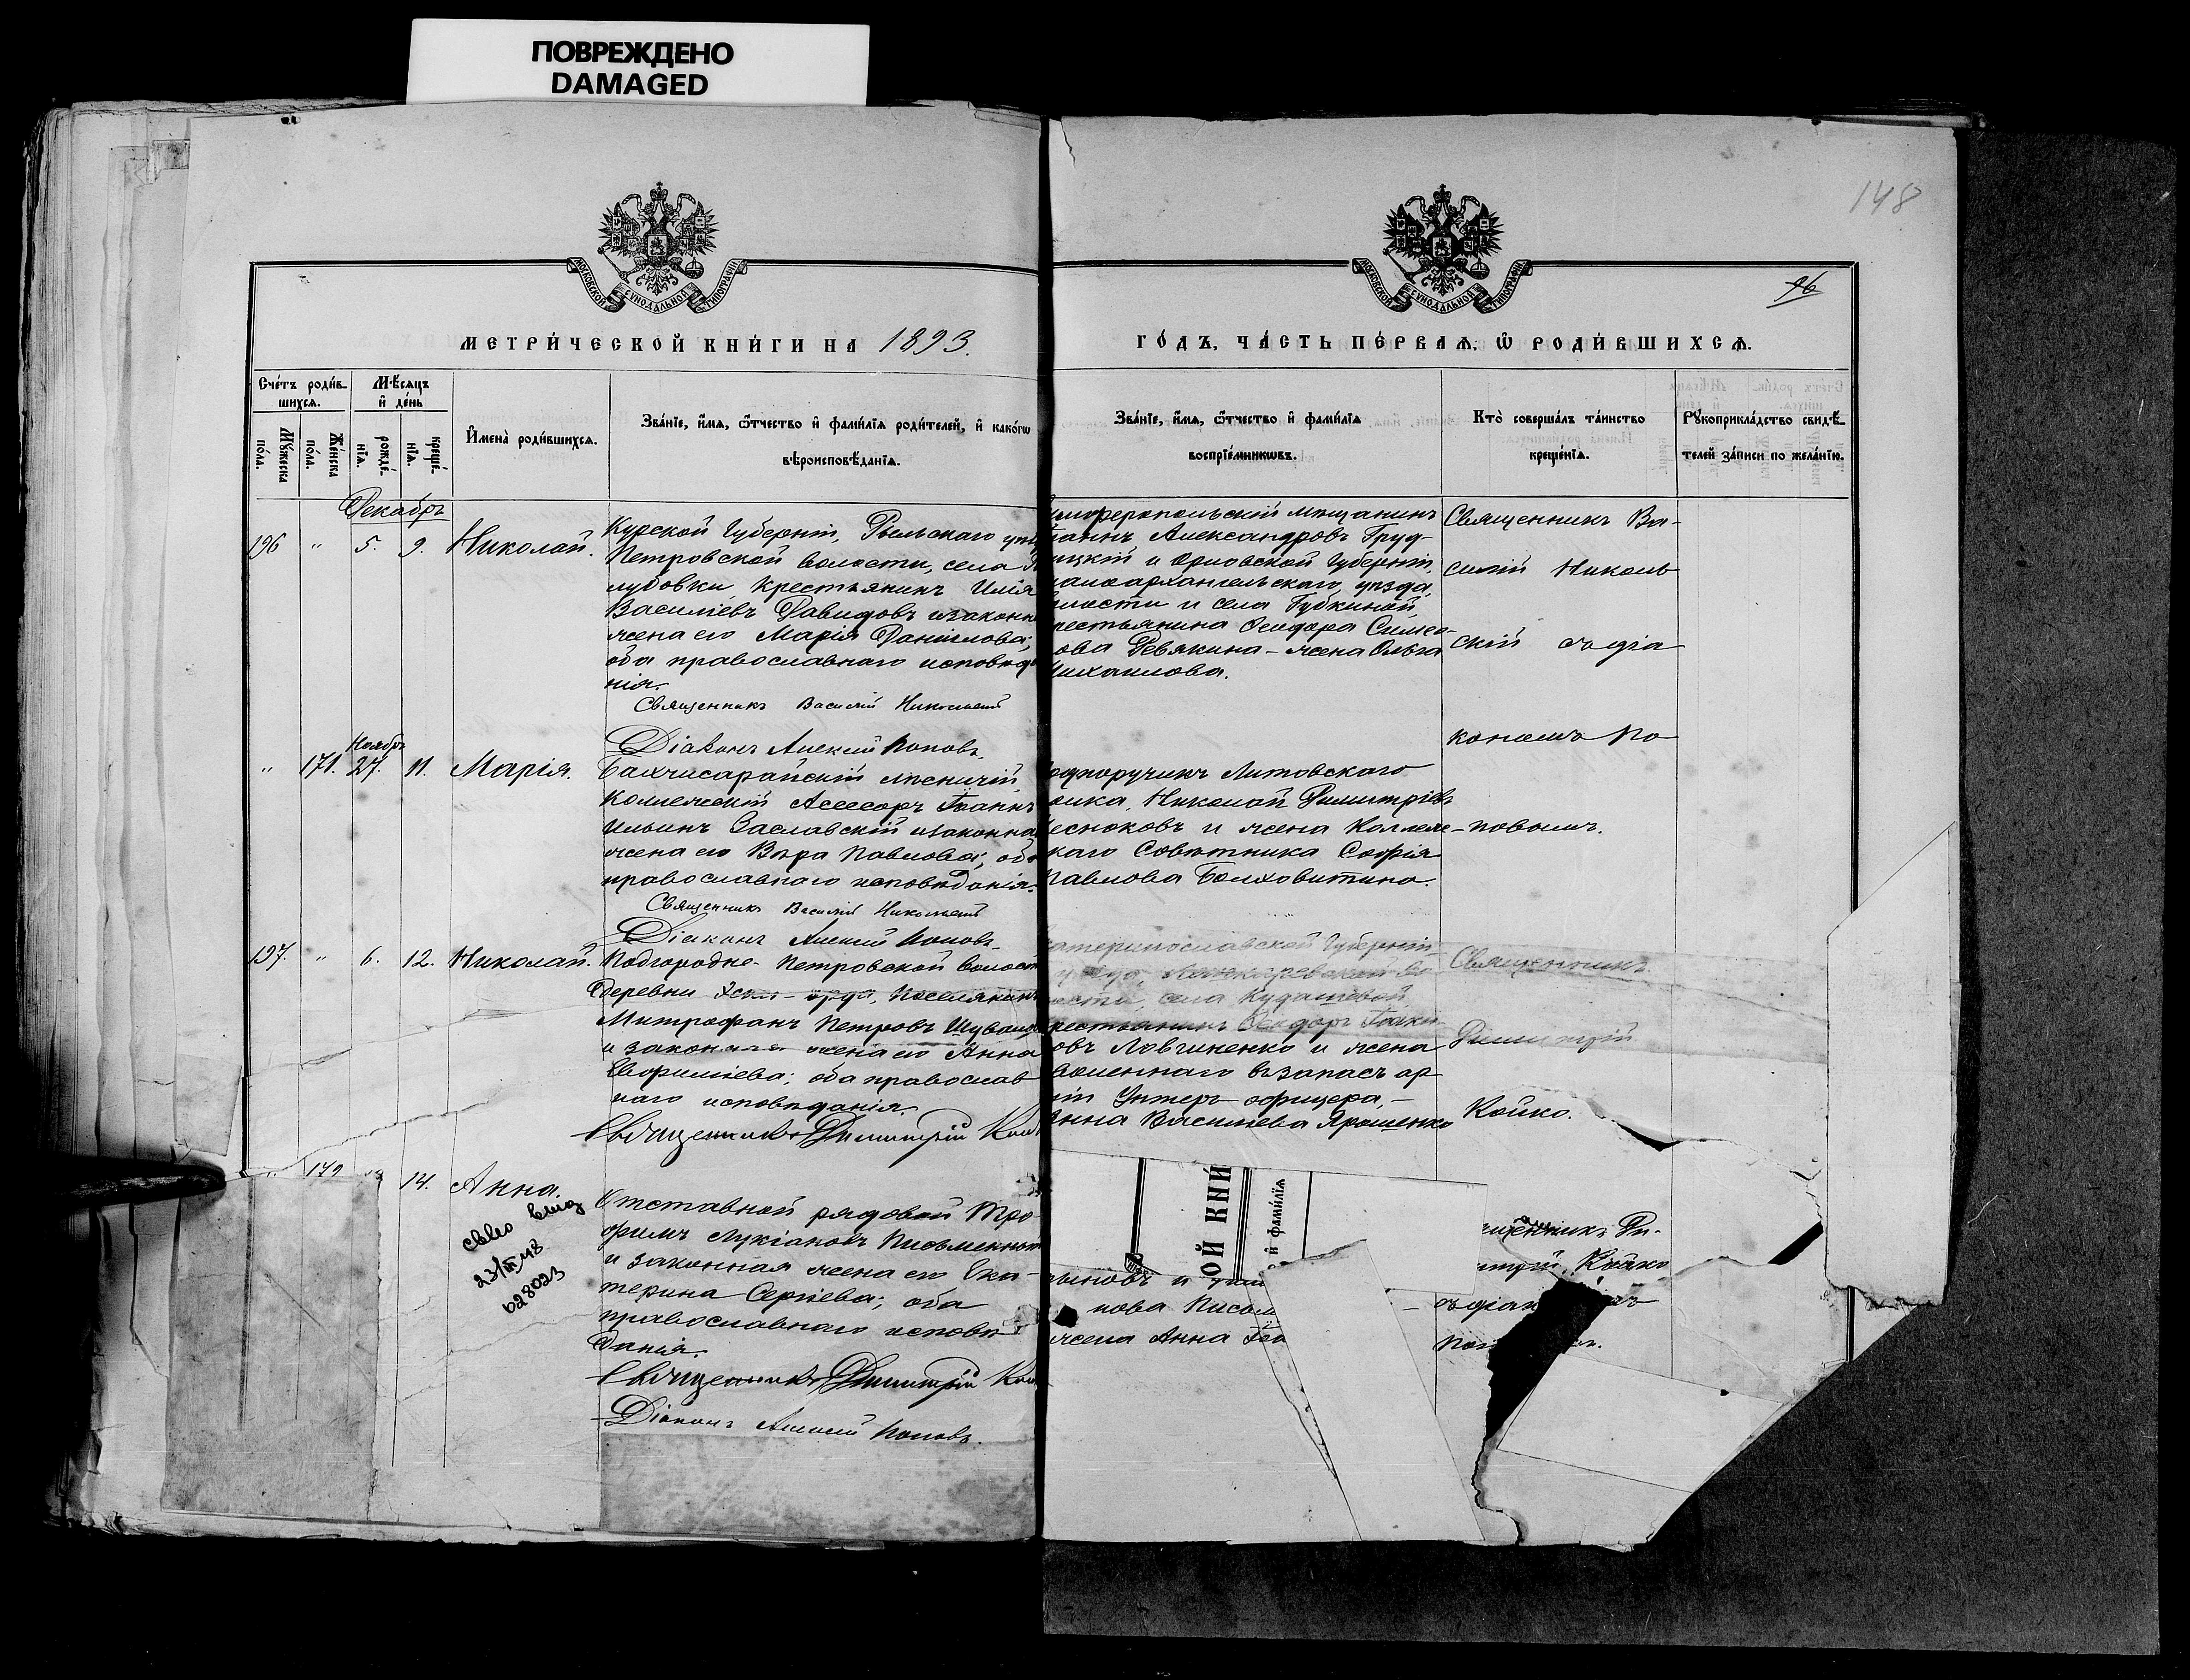 ПОВРЕЖДЕНО
DAMAGED
148
96
МОСКОВСКОЙ СУНОДАЛЬНОЙ ТИПОГРАФІИ
МОСКОВСКОЙ СУНОДАЛЬНОЙ ТИПОГРАФІИ
МЕТРИ́ЧЕСКОЙ КНИ́ГИ НА 1893.
ГО́ДЪ, ЧА́СТЬ ПЕ́РВАѦ, Ѡ РОДИ́ВШИХСѦ.
Сче́тъ роди́в-
шихсѧ.
Мѣ́сѧцъ
и҆ де́нь
Мꙋ́жеска
по́ла.
Же́нска
по́ла.
рожде́-
нїѧ.
креще́-
нїѧ.
И҆мена̀ роди́вшихсѧ.
Зва́нїе, и҆́мѧ, ѻ҆́тчество и҆ фами́лїѧ роди́телей, и҆ како́гѡ
вѣроисповѣ́данїѧ.
Зва́нїе, и҆́мѧ, ѻ҆́тчество и҆ фами́лїѧ
воспрїе́мникѡвъ.
Кто̀ соверша́лъ та́инство
креще́нїѧ.
Рꙋкоприкла́дство свидѣ́-
телей за́писи по жела́нїю.
Декабрь
196 " 5. 9. Николай.
Курской Губерніи, Рыльскаго
Петровской волости, села
лубовки крестьянинъ Илія
Василіевъ Давидовъ и законн
жена его Марія Даніилова;
оба православнаго исповѣда
нія.
Священникъ Василій Никольскій
Діаконъ Алексій Поповъ.
имферопольскій мѣщанинъ
Іоаннъ Александровъ Груд-
ицкій и Орловской Губерніи,
алоархангельскаго уѣзда,
олости и села Губкиной,
рестьянина Ѳеодора Симео-
ова Девякина - жена Ольга
Михаилова.
Священникъ Ва-
силій Николь
скій съ діа
кономъ По
повымъ.
Ноябрь
" 171. 27. 11. Марія.
Бахчисарайскій лѣсничій,
Коллежскій Асессоръ Іоаннъ
Ильинъ Заславскій и законна
жена его Вѣра Павлова; оба
православнаго исповѣданія.
Священникъ Василій Никольскій
Діаконъ Алексій Поповъ
одпоручикъ Литовскаго
олка, Николай Димитріевъ
есноковъ и жена Коллеж-
каго Совѣтника Софія
Павлова Болховитина.
197. " 6. 12. Николай.
Подгородне-Петровской волост
деревни Эски-орда, поселянинъ
Митрофанъ Петровъ Шувало
и законная жена его Анна
Евфиміева; оба православ
наго исповѣданія.
Священникъ Димитрій Кой
катеринославской Губерніи
уѣзда, во
лости, села Кудашевой,
рестьянинъ Ѳеодоръ Іоаки
овъ Ловгиненко и жена
воленнаго въ запасъ ар
міи Унтеръ-офицера,-
Анна Василіева Ярошенко
Священникъ
Димитрій
Койко.
" 172 14. Анна.
св-во выд
23/II 48
028023
Отставной рядовой Тро-
фимъ Лукіановъ Письменный
и законная жена его Ека-
терина Сергіева; оба
православнаго исповѣ
данія.
Священникъ Димитрій Кой
Діаконъ Алексій Поповъ.
ОЙ КНИ́
и҆ фами́лїѧ
ыновъ и
нова Письм
жена Анна Іоа
щенникъ Ди-
митрій Койко
съ діак мъ
Поп ъ.